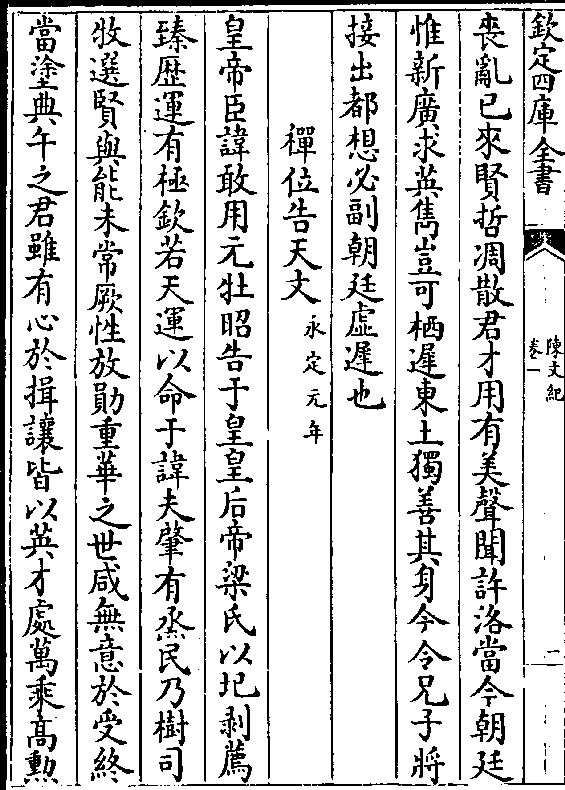 欽定四庫全書
陳文紀
卷一
二
喪亂已來賢哲凋散君才用有美聲聞許洛當今朝廷
惟新廣求英雋豈可栖遲東土獨善其身今令兄子將
接出都想必副朝廷虛遲也
禪位告天文永定元年
皇帝臣諱敢用元牡昭告于皇皇后帝梁氏以圮剥薦
臻歴運有極欽若天運以命于諱夫肇有烝民乃樹司
牧選賢與能未常厥性放勛重華之世咸無意於受終
當塗典午之君雖有心於揖讓皆以英才處萬乘高勲